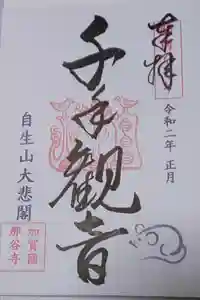 奉拝
令和二年 正月
千手観音
自生山大悲閣
加賀國
那谷寺